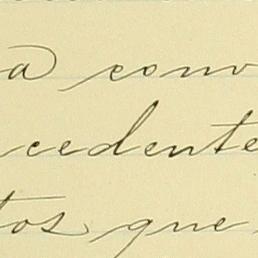 a conv
cedente
tos que